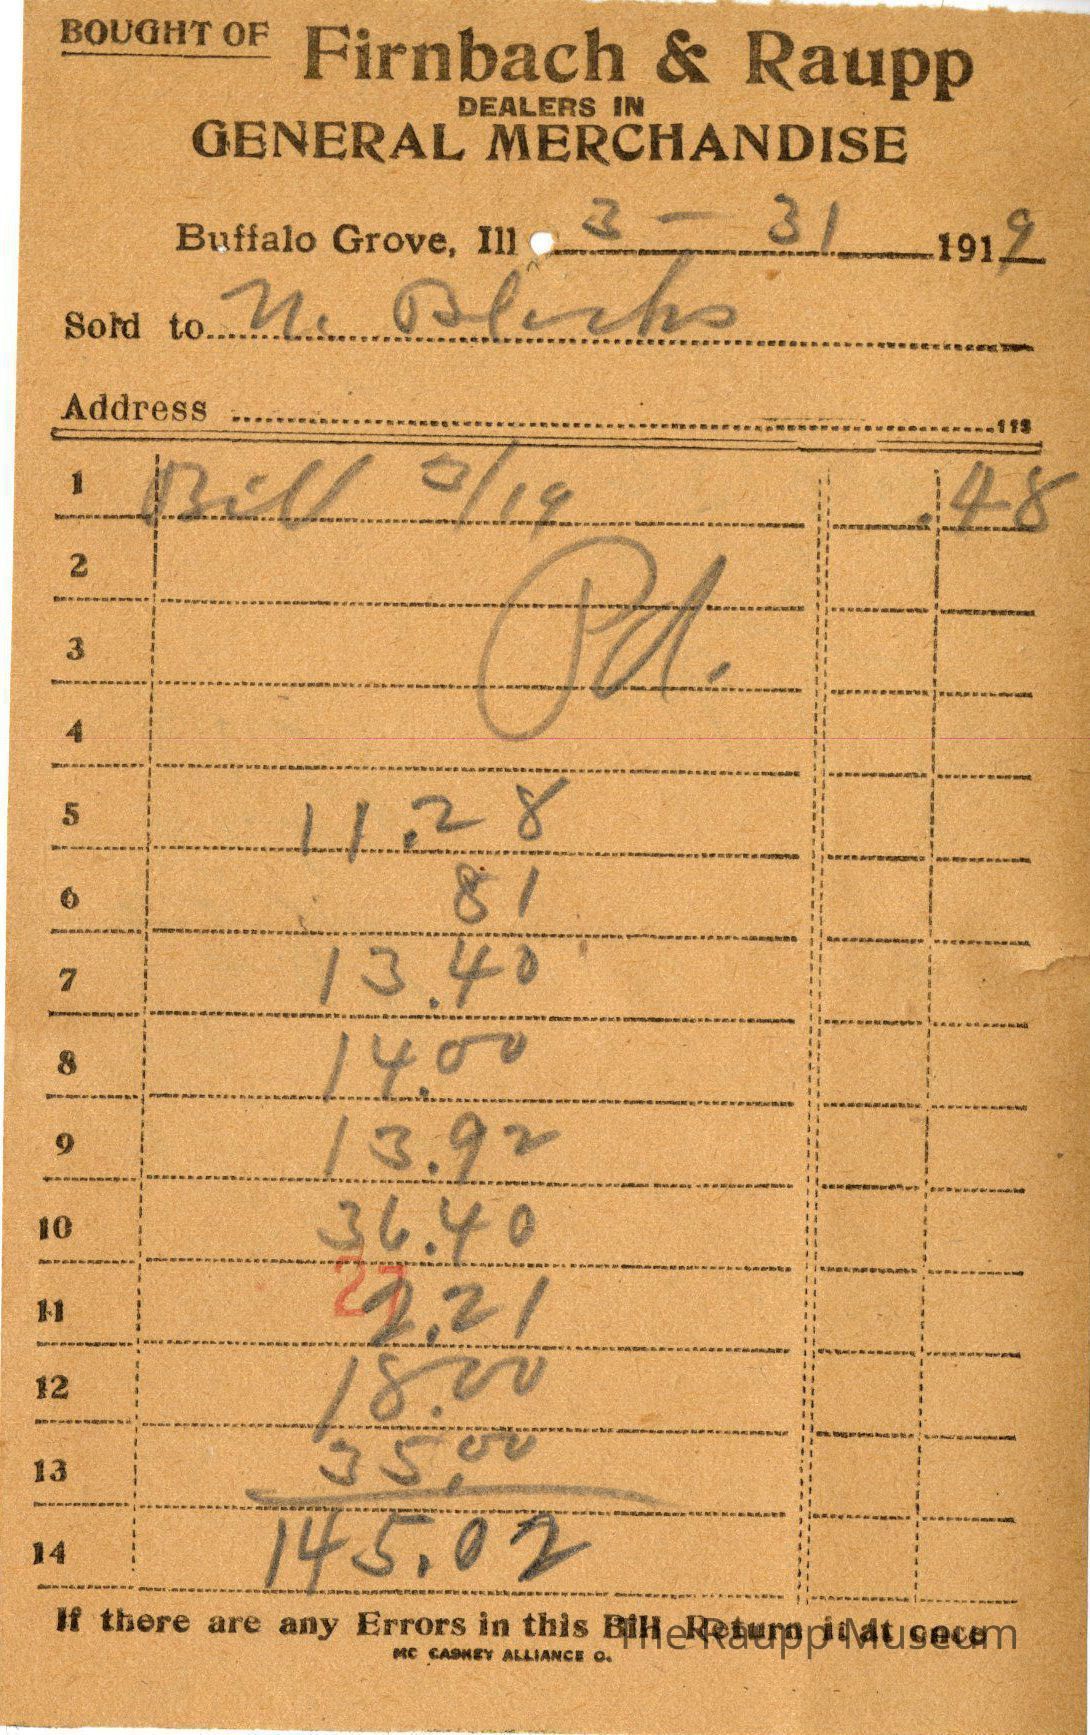 BOUGHT OF Firnbach & Raupp
DEALERS IN
GENERAL MERCHANDISE
Buffalo Grove, Ill 3 - 31 1919
Sold to N.
Address
1 Bill 3/19 .48
2 Pd.
3
4
5 11.28
6 81
7 13.40
8 14.00
9 13.92
10 36.40
27
11 2.21
12 18.00
13 35.00
14 145.02
If there are any Errors in this Bill Return it at once
The Raupp Museum
MC CASKEY ALLIANCE O.